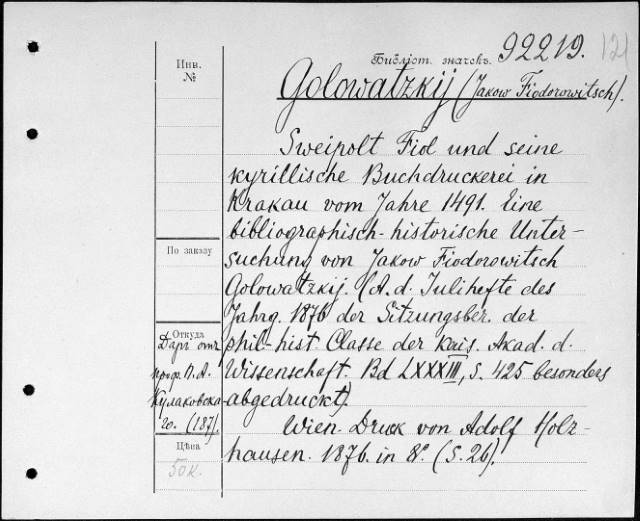 Инв.
№
Библіот. значекъ. 92219. 121
Golowatzkij (Jakow Fiodorowitsch).
Sweipolt Fiol und seine
kyrillische Buchdruckerei in
Krakau vom Jahre 1491. Eine
bibliographisch-historische Unter-
suchung von Jakow Fiodorowitsch
Golowatzkij. (A. d. Julihefte des
Jahrg. 1876 der Sitzungsber. der
phil-hist. Classe der kais. Akad. d.
Wissenschaft. Bd LXXXIII, S. 425 besonders
abgedruckt)
Wien. Druck von Adolf Holz-
hausen. 1876. in 8°. (S. 26).
По заказу
Откуда
Даръ отъ
проф. П. А.
Кулаковска-
го. (187).
Цѣна
50 к.